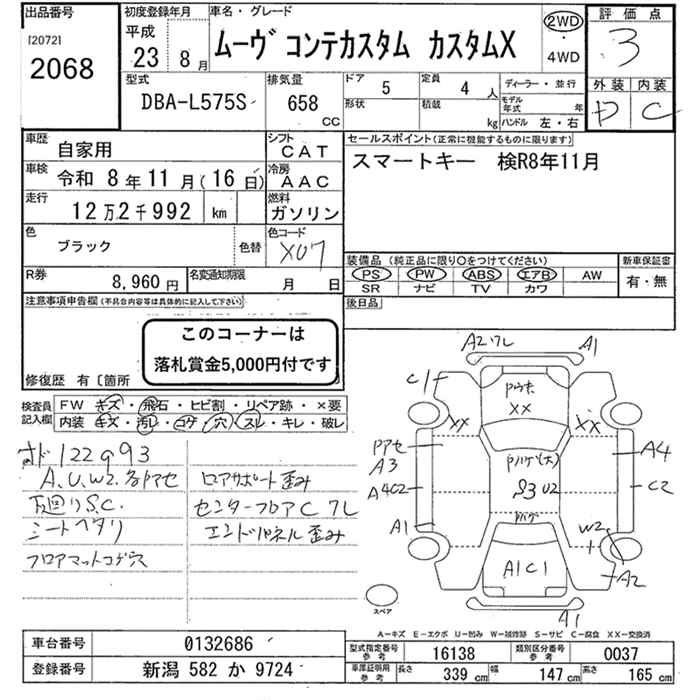 出品番号
[2072]
2068
初度登録年月
平成
23年 8月
車名・グレード
ムーヴ コンテカスタム カスタムX
2WD
・
4WD
評価点
3
外装 内装
D C
型式
DBA-L575S
排気量
658
CC
ドア
5
定員
4 人
形状
積載
kg
ディーラー・並行
モデル年式 年
ハンドル 左・右
車歴
自家用
シフト
CAT
車検
令和 8年11月(16日)
冷房
AAC
走行
12万2千992 km
燃料
ガソリン
色
ブラック
色替
色コード
X07
R券
8,960 円
名変通知期限
月 日
セールスポイント(正常に機能するものに限ります)
スマートキー 検R8年11月
装備品(純正品に限り○をつけてください)
PS PW ABS エアB AW
SR ナビ TV カワ
新車保証書
有・無
後日品
注意事項申告欄(不具合内容等は具体的に記入して下さい)
このコーナーは
落札賞金5,000円付です
修復歴 有〔箇所
検査員記入欄
FW キズ・飛石・ヒビ割・リペア跡・×要
内装 キズ・汚レ・コゲ・穴・スレ・キレ・破レ
オド122993
A、U、W2、各Pアセ
下廻りS.C.
シートヘタリ
フロアマットコゲ穴
ロアサポート歪み
センターフロアC 7L
エンドパネル歪み
A2 7L
A1
C1
Pウキ
XX
XX
XX
Pアセ
A3
A4C2
A1
Pハゲ(大)
S3 U2
Pハゲ
A1C1
A4
C2
W2
A2
A1
スペア
A－キズ E－エクボ U－凹み W－補修跡 S－サビ C－腐食 XX－交換済
車台番号
0132686
登録番号
新潟 582 か 9724
型式指定番号 参考
16138
類別区分番号 参考
0037
車庫証明用 参考
長さ 339 cm
幅 147 cm
高さ 165 cm